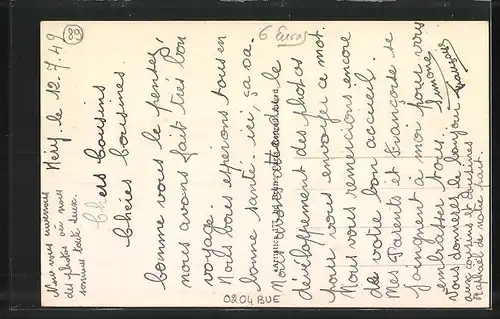 Méry, le 12-7-49
Chers Cousins
Chéries Cousines.
Comme vous le pensez,
nous avons fait très bon
voyage.
Nous vous espérons tous en
bonne santé, ici, ça va.
Nous avons attendu le
développement des photos
pour vous envoyer ce mot.
Nous vous remercions encore
de votre bon accueil.
Mes Parents et Françoise se
joignent à moi pour vous
embrasser tous.
Simone
François
Vous donnerez le bonjour
aux cousins et cousines
Raphaël de notre part.
Nous vous enverrons
des photos où nous
sommes toute deux.
6 Euros
0204 BUE